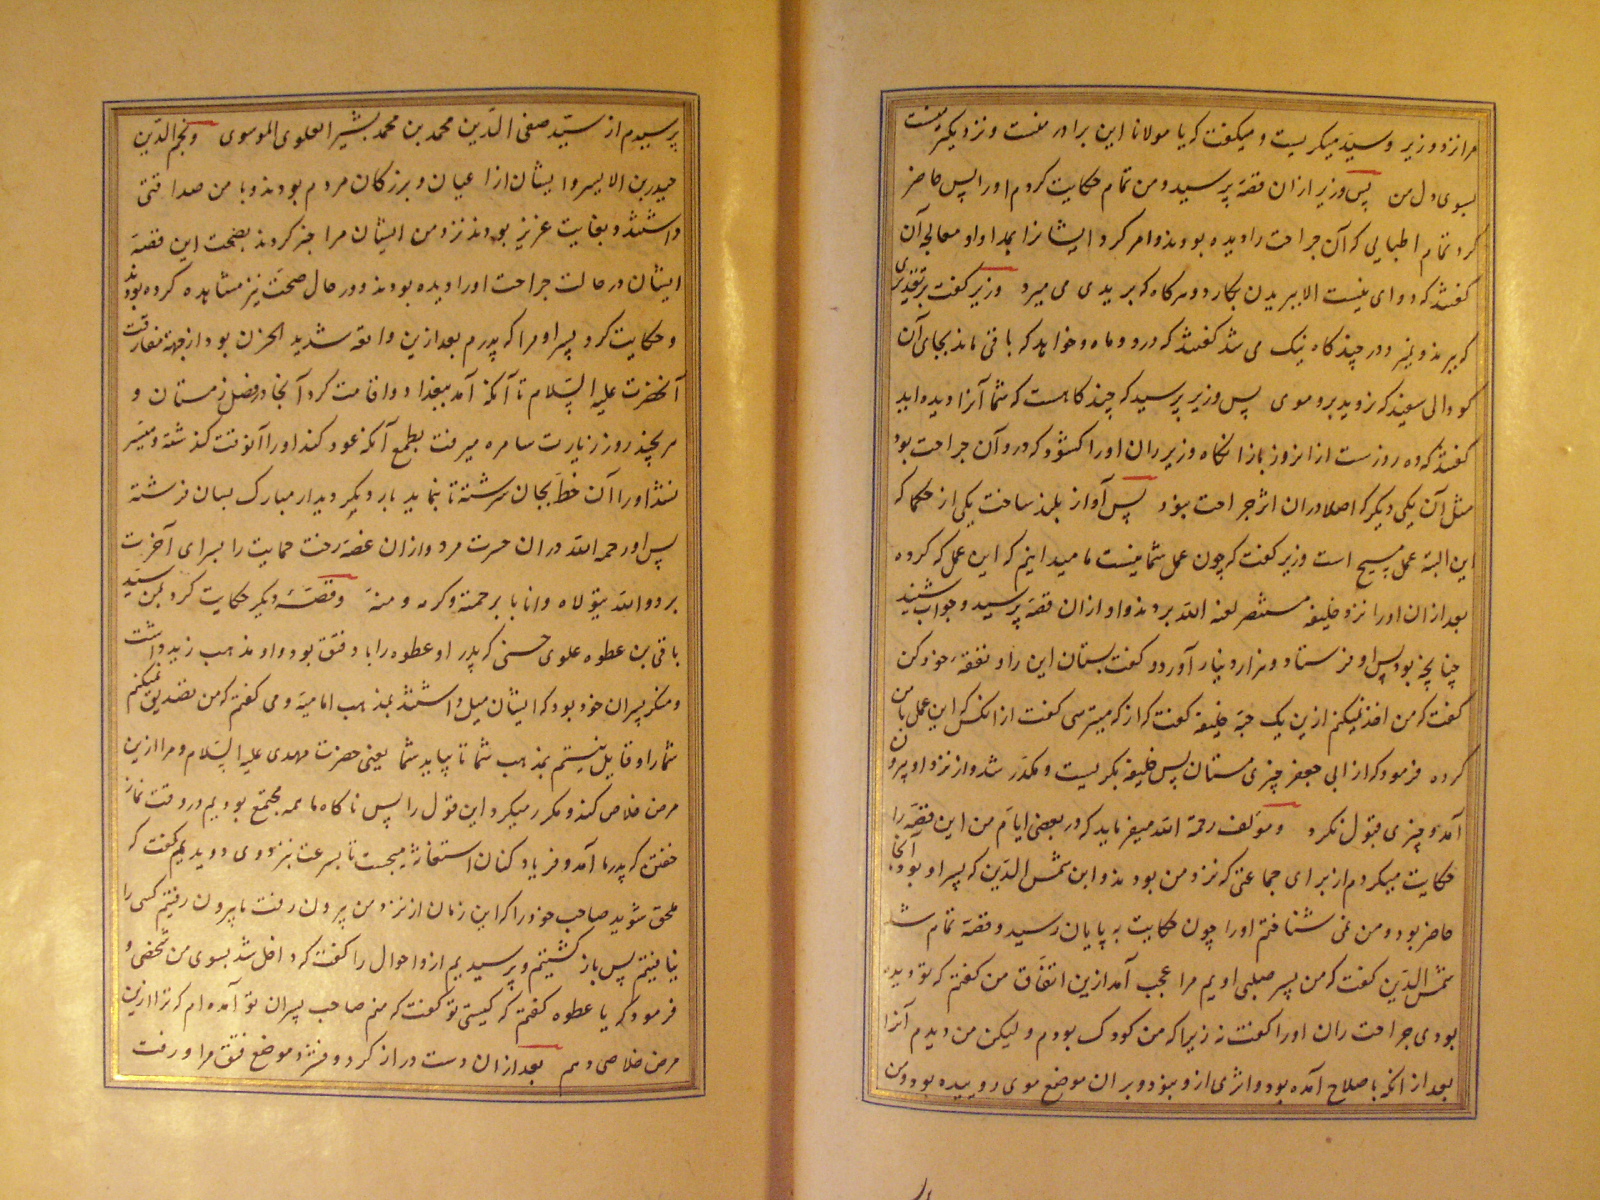 مرا نزد وزیر و سید میکریست و میکفت که یا مولانا این برادر منست و نزدیکترینست
بسوی دل من پس وزیر ازان قصه پرسید و من تمام حکایت کردم اورا پس حاضر
کرد تمام اطبایی که آن جراحت را دیده بودند و امر کرد ایشانرا بمداوا و معالجه آن
کفتند که دوای نیست الا بریدن بکارد و هرکاه که بریدی می میرد وزیر کفت بر تقدیری
که ببرند و نمیرد در چند کاه نیک می شد کفتند که در دو ماه و خواهد که باقی ماند بجای آن
کودالی سفید که نروید برو موی پس وزیر پرسید که چند کاهست که شما آنرا دیده اید
کفتند که ده روزست از انروز باز انکاه وزیر ران اورا کشود که در و آن جراحت بود
مثل آن یکی دیکر که اصلا دران اثر جراحت نبود پس آواز بلند ساخت یکی از حکما که
این البته عمل مسیح است وزیر کفت که چون عمل شما نیست ما میدانیم که این عمل که کرده
بعد ازان اورا نزد خلیفه مستنصر لعنه الله بردند و او ازان قصه پرسید و جواب شنید
چنانچه بود پس او فرستاد و هزار دینار آورد و کفت بستان این را و نفقه خود کن
کفت که من اخذ نمیکنم ازین یک حبه خلیفه کفت که از که میترسی کفت از انکس که این عمل با من
کرده فرمود که از ابی جعفر چیزی مستان پس خلیفه بکریست و مکدر شد و از نزد او بیرون
آمد و چیزی قبول نکرد و مولف رحمة الله میفرماید که در بعضی ایام من این قصه را
حکایت میکردم از برای جماعتی که نزد من بودند و ابن شمس الدین که پسر او بود آنجا
حاضر بود و من نمی شناختم اورا چون حکایت به پایان رسید و قصه تمام شد
شمس الدین کفت که من پسر صلبی اویم مرا عجب آمد ازین اتفاق من کفتم که تو دیده
بودی جراحت ران اورا کفت نه زیرا که من کودک بودم و لیکن من دیدم آنرا
بعد از انکه باصلاح آمده بود و اثری ازو نبود و بران موضع موی روییده بود و من
پرسیدم از سید صفی الدین محمد بن محمد بشیر العلوی الموسوی و نجم الدین
حیدر بن الایسر و ایشان از اعیان و بزرکان مردم بودند و با من صداقتی
داشتند و بغایت عزیز بودند نزد من ایشان مرا خبر کردند بصحت این قصه
ایشان در حالت جراحت اورا دیده بودند و در حال صحت نیز مشاهده کرده بودند
و حکایت کرد پسر او مرا که پدرم بعد ازین واقعه شدید الحزن بود از جهة مفارقت
آنحضرت علیه السلام تا آنکه آمد ببغداد و اقامت کرد آنجا در فصل زمستان و
هر چند روز زیارت سامره میرفت بطمع آنکه عود کند اورا آنوقت کذشته و میسر
نشد اورا آن خط بجان سرشته تا بنماید بار دیکر دیدار مبارک بسان فرشته
پس او رحمه الله دران حسرت مرد و ازان غصه رخت حمایت را بسرای آخرت
برد و الله یتولاه و ایانا برحمته و کرمه و منه و قصه دیکر حکایت کرد بمن سید
باقی بن عطوه علوی حسنی که پدر او عطوه را باد فتق بود و او مذهب زیدی داشت
و منکر پسران خود بود که ایشان میل داشتند بمذهب امامیه و می کفتم که من تصدیق نمیکنم
شما را و قایل نیستم بمذهب شما تا بیاید شما یعنی حضرت مهدی علیه السلام و مرا ازین
مرض خلاص کند و مکرر میکرد این قول را پس ناکاه ما همه مجتمع بودیم در وقت نماز
خفتن که پدر ما آمد و فریاد کنان استغاثه میجست تا بسرعت بنزد وی دویدیم کفت که
ملحق شوید صاحب خود را که این زمان از نزد من بیرون رفت ما بیرون رفتیم کسی را
نیافتیم پس باز کشتیم و پرسیدیم ازو احوال را کفت که داخل شد بسوی من شخصی و
فرمود که یا عطوه کفتم که کیستی تو کفت که منم صاحب پسران تو آمده ام که ترا ازین
مرض خلاصی دهم بعد ازان دست دراز کرد و فشرد موضع فتق مرا و رفت